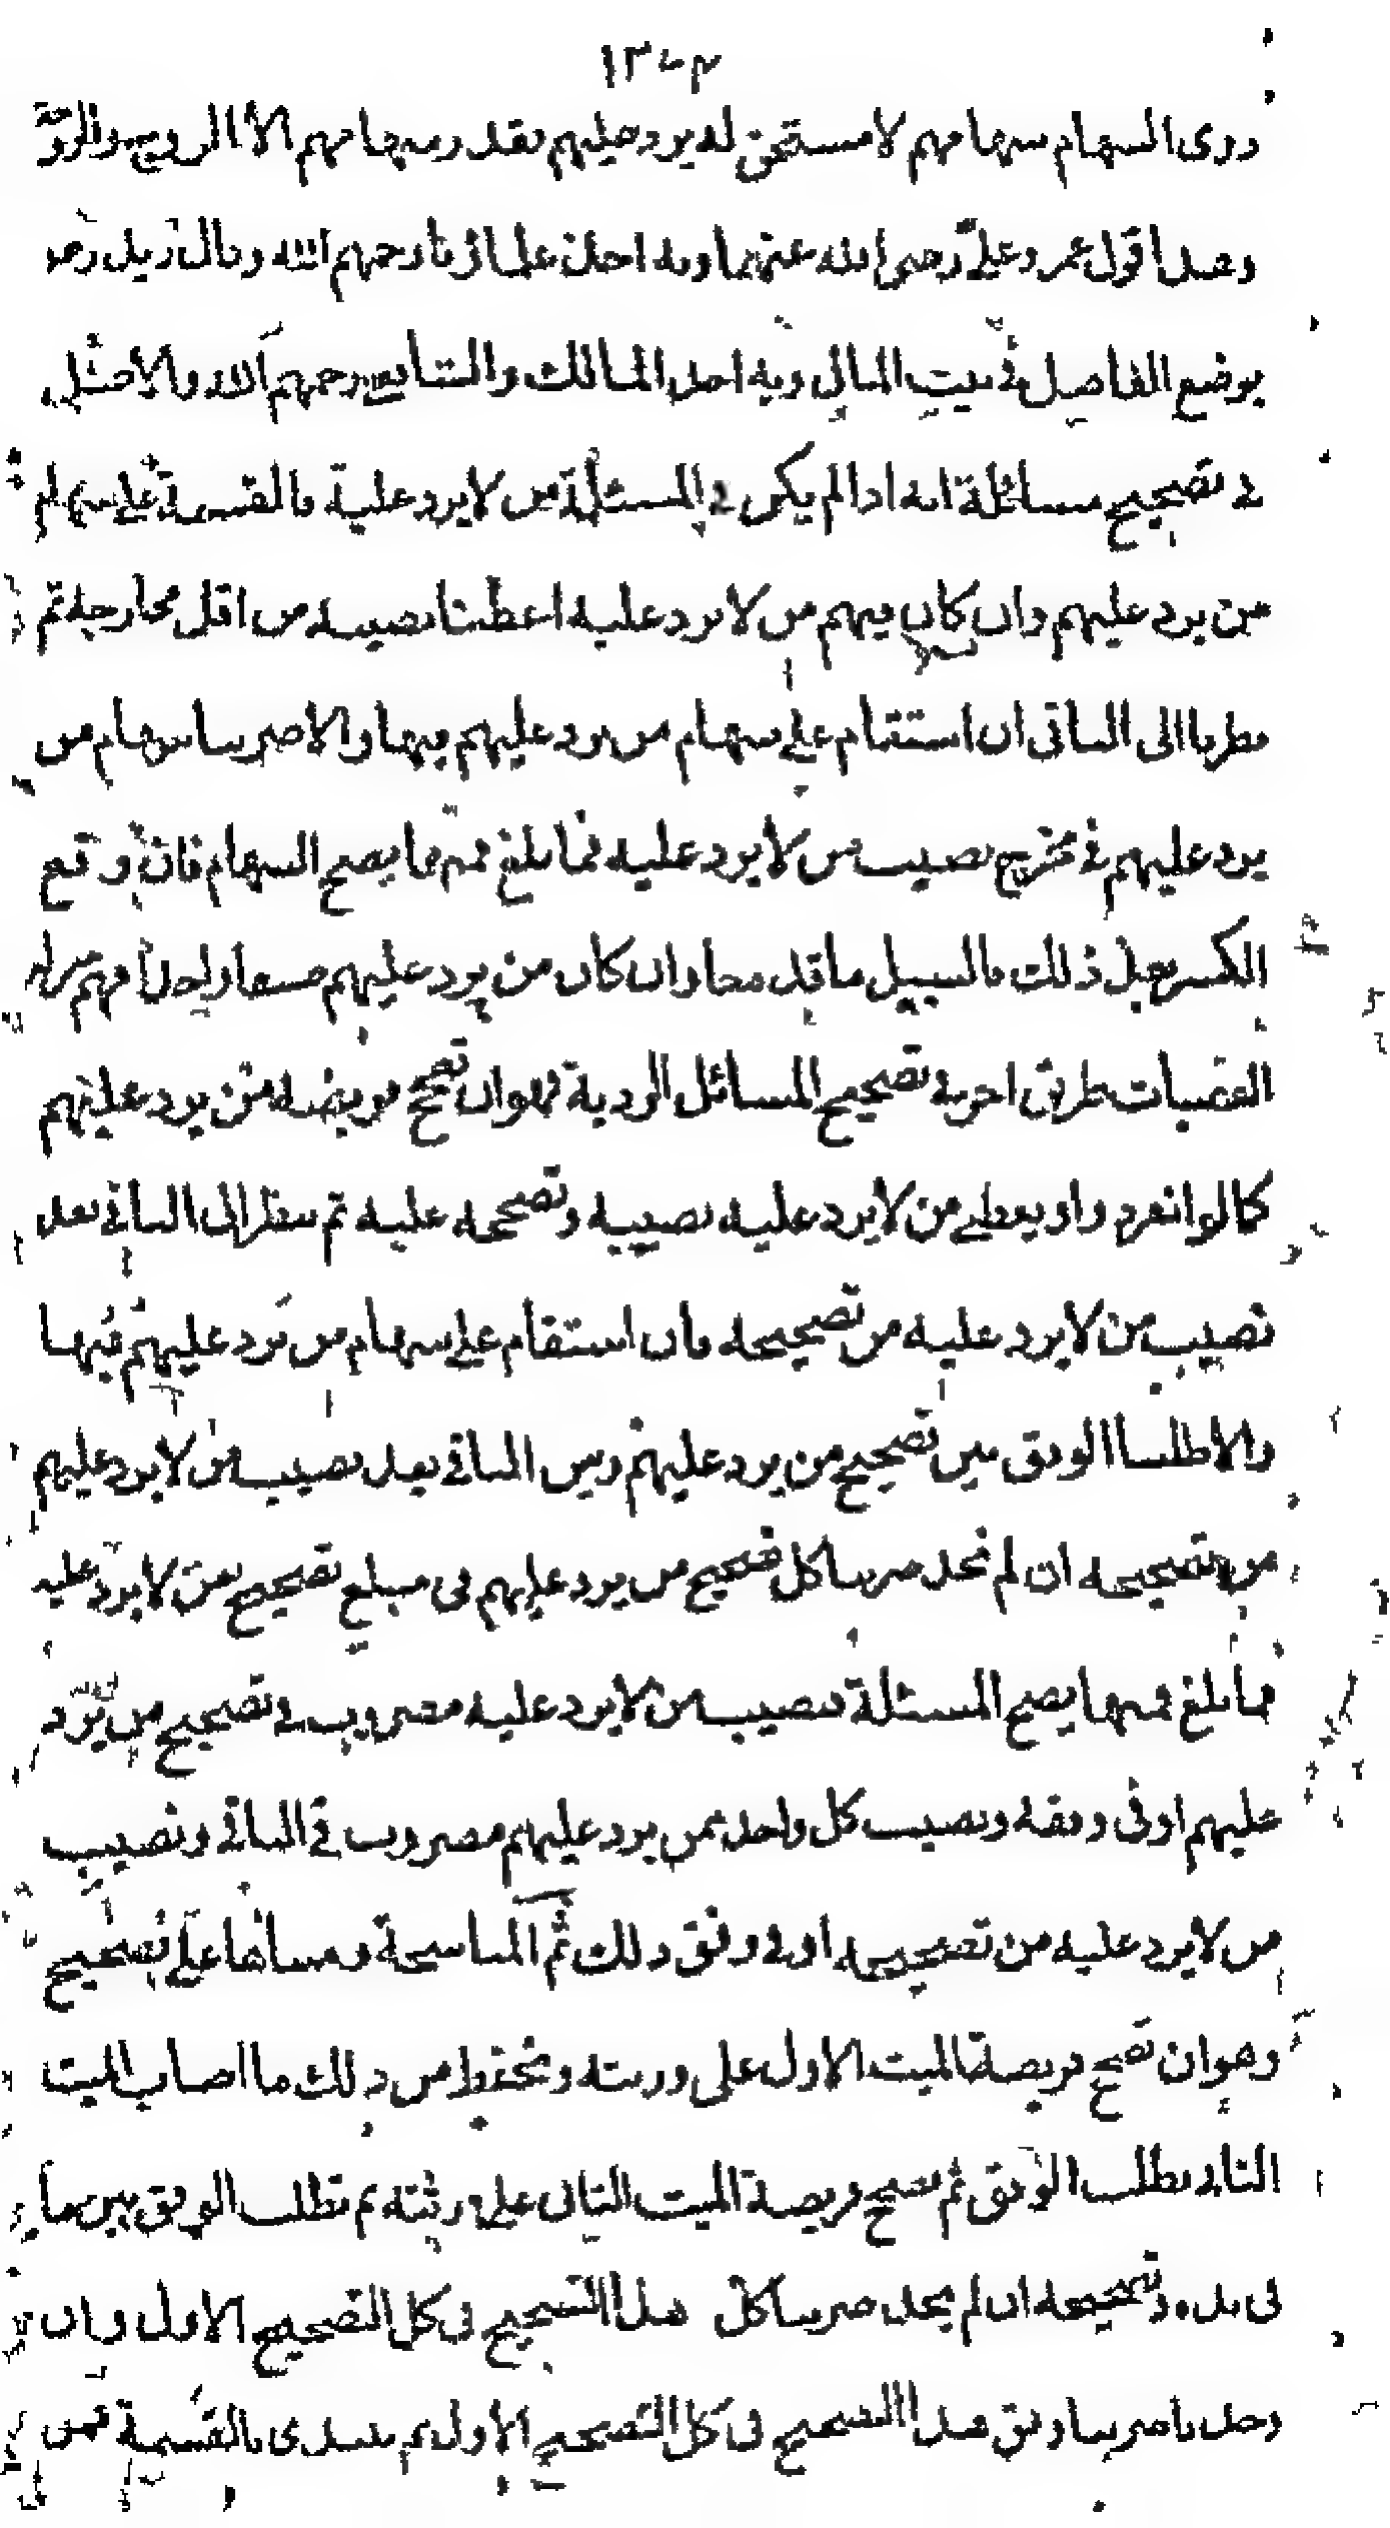 ١٣٧٤
ذوى السهام سهامهم لا مستحق له يرد عليهم بقدر سهامهم الا الزوج والزوجة
وهذا قول عمر وعلى رضى الله عنهما وبه اخذ علماؤنا رحمهم الله وقال زيد رضه
يوضع الفاضل فى بيت المال وبه اخذ المالك والشافعى رحمهم الله والاصل
فى تصحيح مسائلة انه اذا لم يكن فى المسئلة من لا يرد عليه فالقسمة على سهام
من يرد عليهم وان كان فيهم من لا يرد عليه اعطينا نصيبه من اقل مخارجه ثم
نظرنا الى الباقى ان استقام على سهام من يرد عليهم فبها والا ضربنا سهام من
يرد عليهم فى مخرج نصيب من لا يرد عليه فما بلغ فمنها يصح السهام فان وقع
الكسر بعد ذلك فالسبيل ما قدمنا وان كان من يرد عليهم صنفا واحدا فهم
العصبات طريق اخر فى تصحيح المسائل الردية فهو ان تصحح فريضة من يرد عليهم
كما لو انفردوا ويعطى من لا يرد عليه نصيبه وتصحيحه عليه ثم ينظر الى الباقى بعد
نصيب من لا يرد عليه من تصحيحه فان استقام على سهام من يرد عليهم فبها
والا طلبنا الوفق بين تصحيح من يرد عليهم وبين الباقى بعد نصيب من لا يرد عليهم
من تصحيحه ان لم نجد ضربنا كل تصحيح من يرد عليهم فى مبلغ تصحيح من لا يرد عليه
فما بلغ فمنها يصح المسئلة نصيب من لا يرد عليه مضروب فى تصحيح من يرد
عليهم او فى وفقه ونصيب كل واحد ممن يرد عليهم مضروب فى الباقى ونصيب
من لا يرد عليه من تصحيحه او فى وفق ذلك ثم المناسخة ومبناها على تصحيح
وهو ان تصحح فريضة الميت الاول على ورثته وتحفظ من ذلك ما اصاب الميت
الثانى بطلب الوفق ثم تصحح فريضة الميت الثانى على ورثته ثم تطلب الوفق بين ما
فى يده وتصحيحه ان لم يجد ضربنا كل هذا التصحيح فى كل التصحيح الاول وان
وجدنا ضربنا وفق هذا التصحيح فى كل التصحيح الاول ثم يبتدى بالقسمة فمن